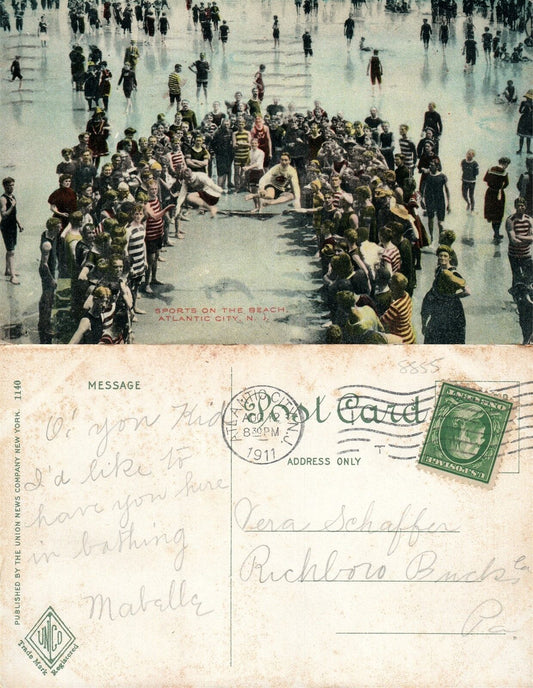 SPORTS ON THE BEACH,
ATLANTIC CITY, N. J.
8855
1140
PUBLISHED BY THE UNION NEWS COMPANY NEW YORK.
MESSAGE
Post Card
ADDRESS ONLY
ATLANTIC CITY, N.J.
8 30 PM
1911
T
U.S. POSTAGE
O! you Kid
I'd like to
have you here
in bathing
Mabelle
Vera Schaffer
Richboro Bucks Co
Pa
UNCO
Trade Mark Registered